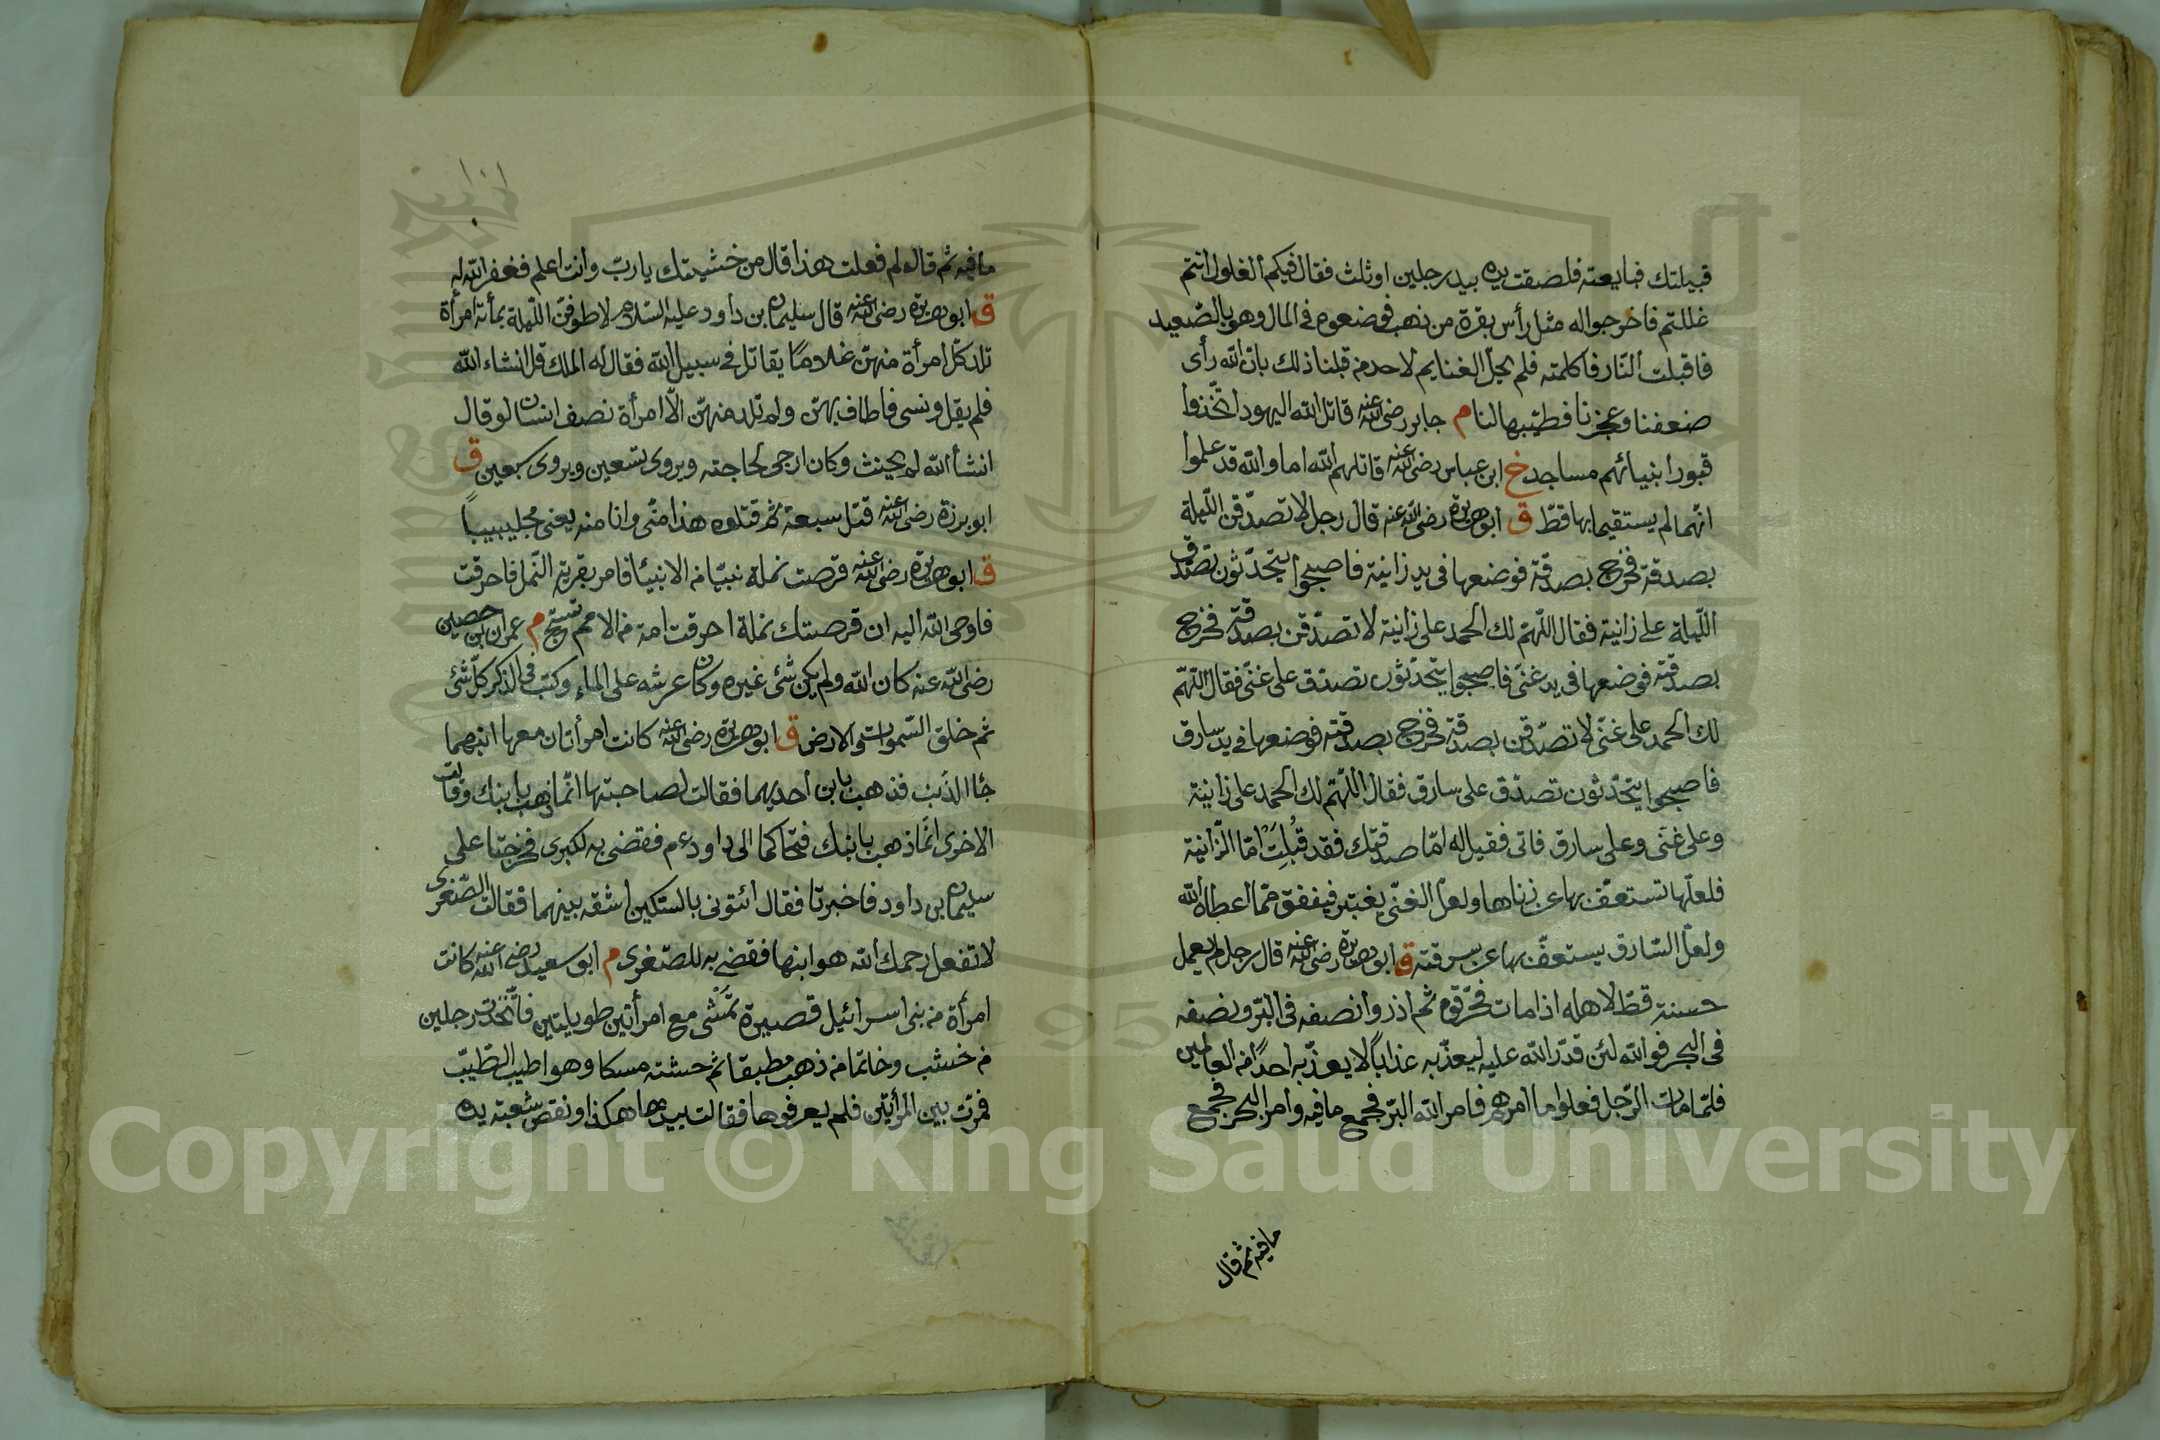 قبيلتك فبايعته فلصقت يده بيد رجلين او ثلث فقال فيكم الغلول انتم
غللتم فاخرجوا له مثل رأس بقرة من ذهب فوضعوه في المال وهو بالصّعيد
فاقبلت النّار فاكلته فلم يحلّ الغنايم لاحد من قبلنا ذلك بانّ الله رأى
ضعفنا وعجزنا فطيّبها لنا م جابر رضى الله عنه قاتل الله اليهود اتّخذوا
قبور انبيائهم مساجد خ ابن عباس رضى الله عنه قاتلهم الله اما والله قد علموا
انّهما لم يستقيما بها قطّ ق ابو هريرة رضى الله عنه قال رجل لاتصدّقن اللّيلة
بصدقة فخرج بصدقة فوضعها فى يد زانية فاصبحوا يتحدّثون تصدّق
اللّيلة على زانية فقال اللّهمّ لك الحمد على زانية لاتصدّقن بصدقة فخرج
بصدقته فوضعها فى يد غنّى فاصبحوا يتحدّثون تصدّق على غنّى فقال اللّهمّ
لك الحمد على غنّى لاتصدّقن بصدقة فخرج بصدقته فوضعها في يد سارق
فاصبحوا يتحدّثون تصدّق على سارق فقال اللّهمّ لك الحمد على زانية
وعلى غنّى وعلى سارق فاتى فقيل له امّا صدقتك فقد قُبِلَتْ امّا الزّانية
فلعلّها تستعفّ بها عن زناها ولعلّ الغنّى يعتبر فينفق ممّا اعطاه الله
ولعلّ السّارق يستعفّ بها عن سرقته ق ابو هريرة رضى الله عنه قال رجل لم يعمل
حسنة قطّ لاهله اذا مات فحرّقوه ثم اذروا نصفه فى البرّ ونصفه
فى البحر فوالله لئن قدّر الله عليه ليعذّبه عذاباً لا يعذّبه احدًا من العالمين
فلمّا مات الرّجل فعلوا ما امرهم فامر الله البرّ فجمع ما فيه وامر البحر فجمع
ما فيه ثم قال
ما فيه ثم قال لم فعلت هذا قال من خشيتك يا ربّ وانت اعلم فغفر الله له
ق ابو هريرة رضى الله عنه قال سليمان بن داود عليه السّلام لاطوفنّ اللّيلة بمأئة امرأة
تلد كلّ امرأة منهنّ غلامًا يقاتل في سبيل الله فقال له الملك قل انشاء الله
فلم يقل ونسى فاطاف بهنّ ولم تلد منهنّ الّا امرأة نصف انسان لو قال
انشأ الله لم يحنث وكان ارجى لحاجته ويروى تسعين ويروى سبعين ق
ابو برزة رضى الله عنه قتل سبعة ثم قتلوه هذا منّى وانا منه يعنى جليبيباً
ق ابو هريرة رضى الله عنه قرصت نملة نبيّا من الانبيأ فامر بقرية النّمل فاحرقت
فاوحى الله اليه ان قرصتك نملة احرقت امة من الامم تسبّح م عمران بن حصين
رضى الله عنه كان الله ولم يكن شئ غيره وكان عرشه على الماء وكتب فى الذّكر كلّ شئ
ثم خلق السّموات والارض ق ابو هريرة رضى الله عنه كانت امرأتان معها ابنهما
جأ الذّئب فذهب بابن أحديهما فقالت لصاحبتها انّما ذهب بابنك وقالت
الاخرى انّما ذهب بابنك فتحاكما الى داود ءم فقضى به لكبرى فخرجتا على
سليمان بن داود فاخبرتا فقال ائتونى بالسّكين اشقه بينهما فقالت الصّغرى
لا تفعل رحمك الله هو ابنها فقضى به للصّغرى م ابو سعيد رضى الله عنه كانت
امرأة من بنى اسرائيل قصيرة تمشى مع امرأتين طويلتين فاتّخذت رجلين
من خشب وخاتما من ذهب مطبقا ثم حشته مسكا وهو اطيب الطّيب
فمرّت بين المرأتين فلم يعرفوها فقالت بيدها هكذا ونقض شعبة يده
Copyright © King Saud University